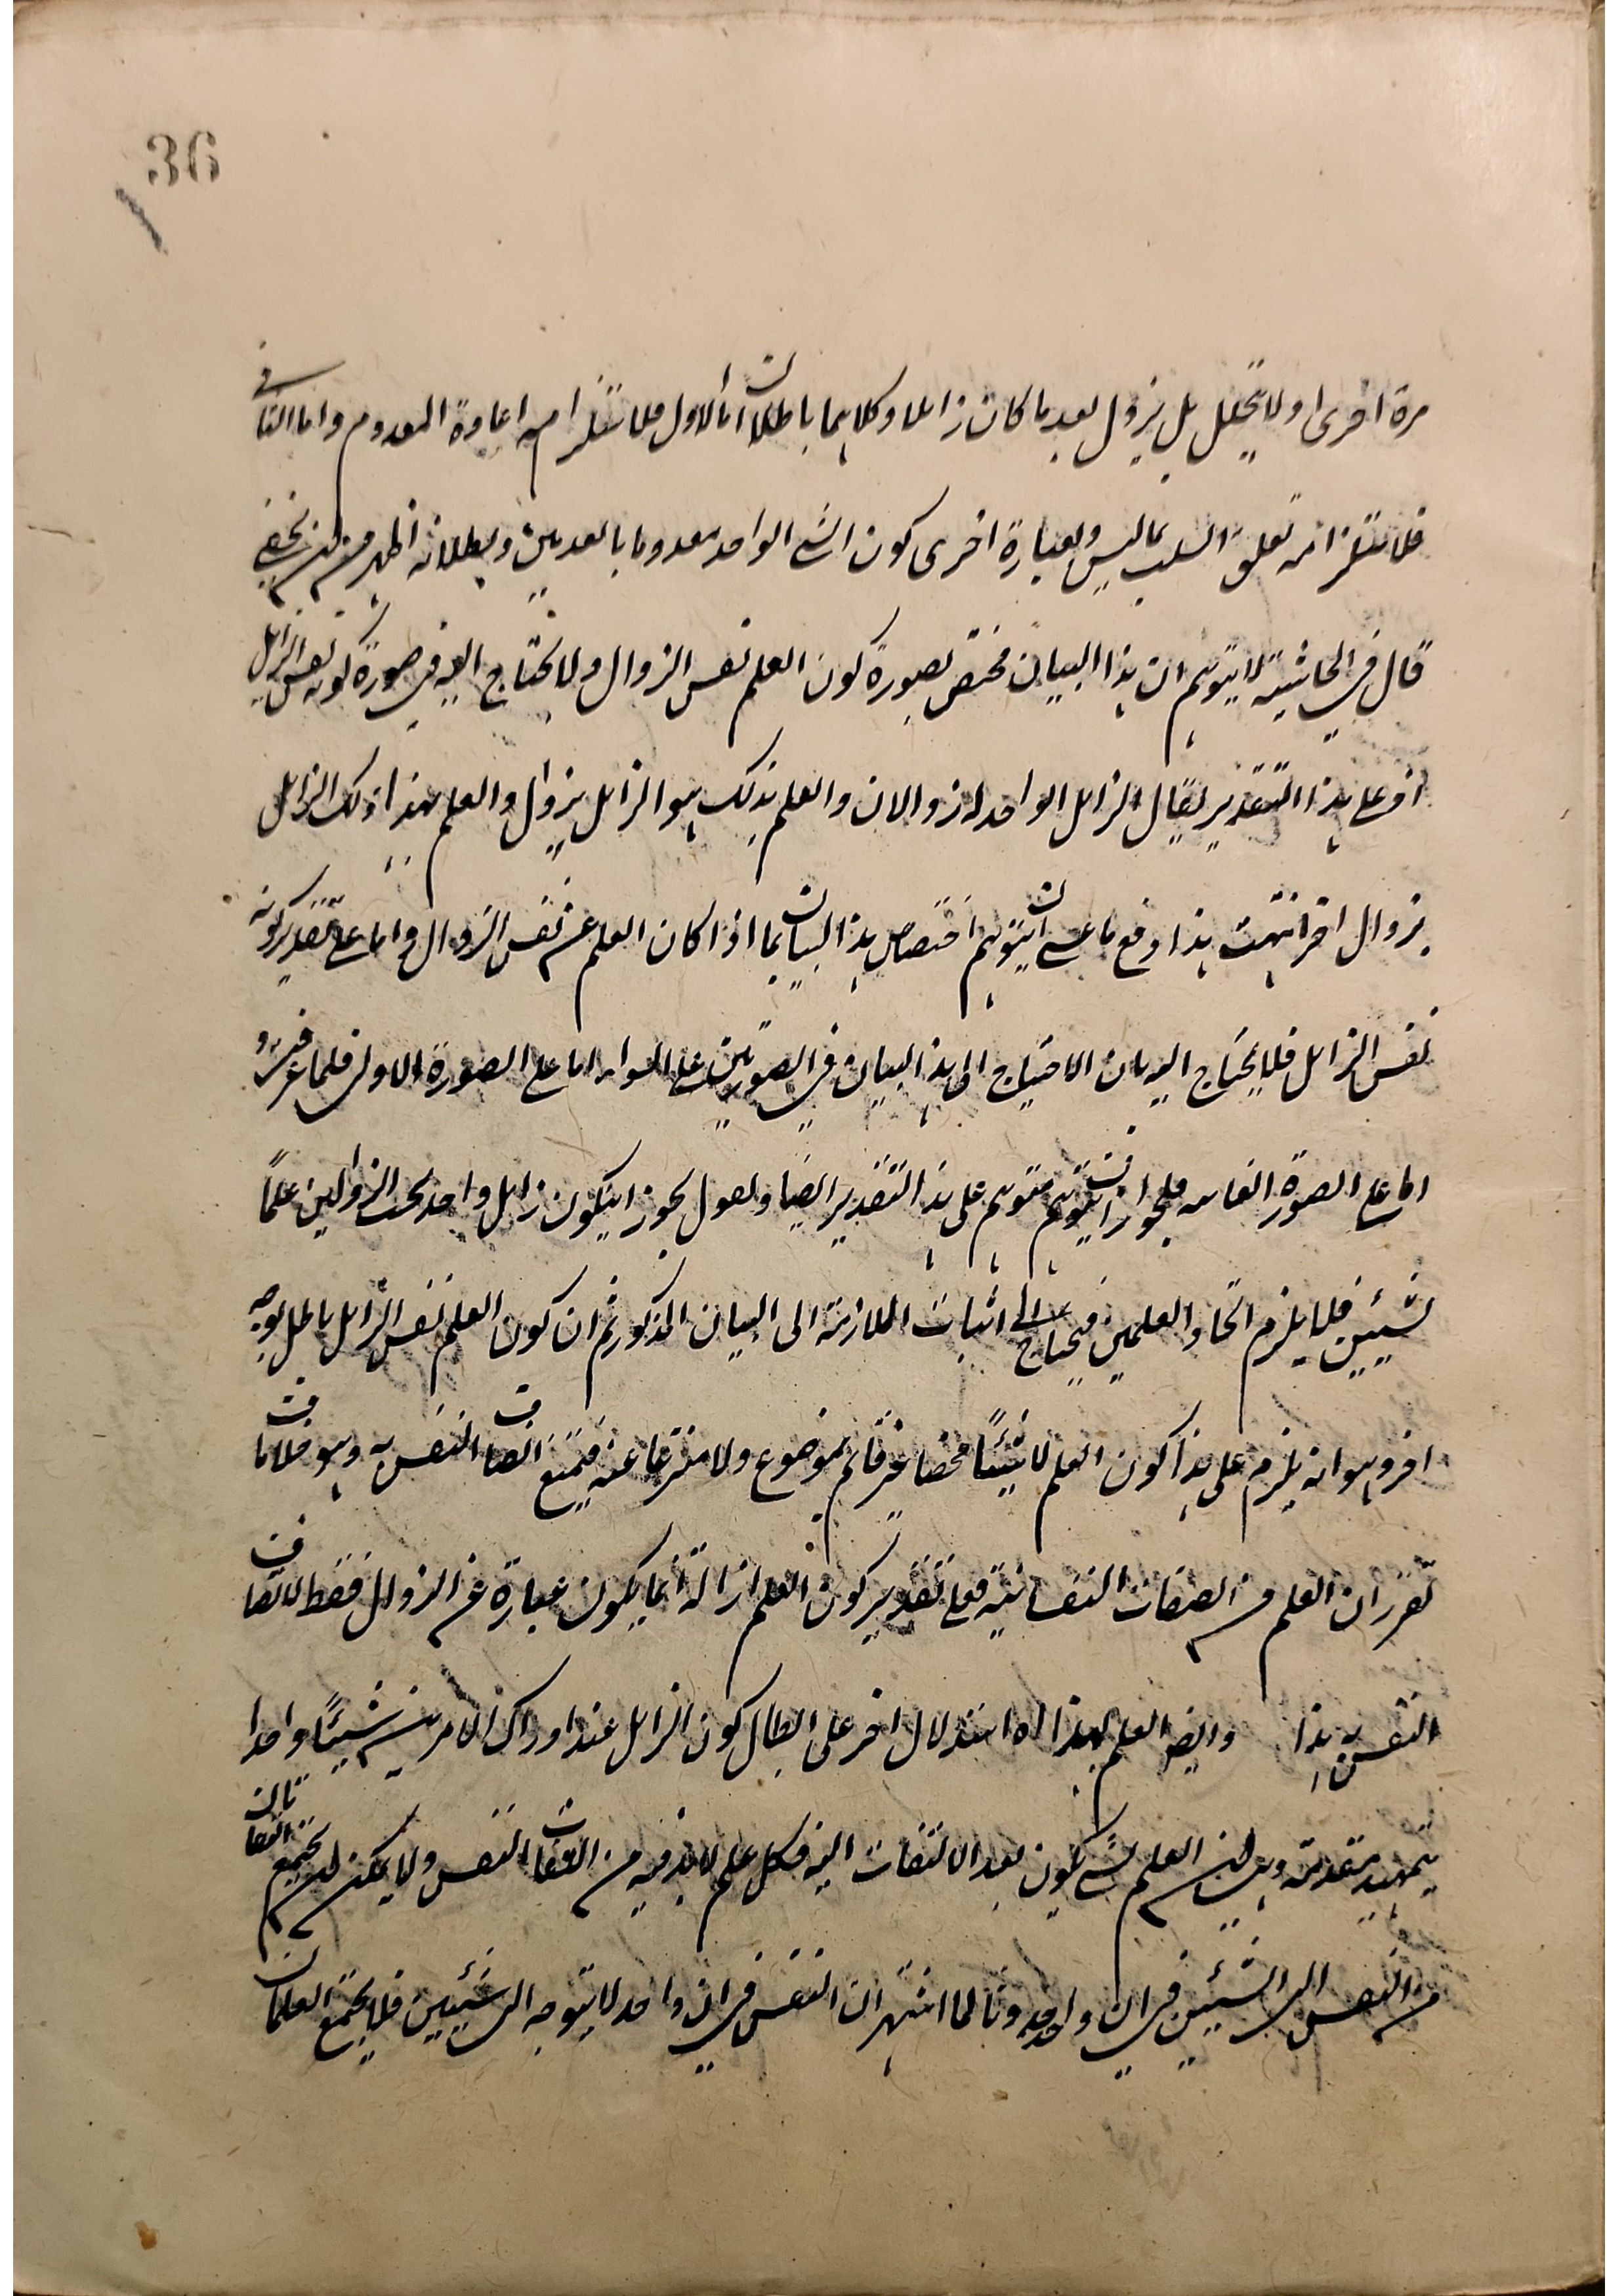 36
مرة اخرى او لا يتخلل بل يزول بعد ما كان زائلا وكلاهما باطلان أما الاول فلاستلزامه اعادة المعدوم واما الثاني
فلاستلزامه تعلق السلب بما ليس وبعبارة اخرى كون الشئ الواحد معدوما بالعدمين وبطلانه اظهر من ان يخفى
قال في الحاشية لا يتوهم ان هذا البيان مختص بصورة كون العلم نفس الزوال ولا يحتاج اليه في صورة كونه نفس الزايل
اذ على هذا التقدير يقال الزايل الواحد له زوالان والعلم بذلك هو الزايل بزوال والعلم بهذا ذلك الزايل
بزوال اخر انتهت هذا دفع ما عسى ان يتوهم اختصاص هذا البيان بما اذا كان العلم عن نفس الزوال واما على تقدير كونه
نفس الزايل فلا يحتاج اليه بان الاحتياج الى هذا البيان في الصورتين على السواء اما على الصورة الاولى فلما عرفت و
اما على الصورة الثانية فلجواز ان يتوهم متوهم على هذا التقدير ايضا ويقول يجوز ان يكون زايل واحد بحسب الزوالين علمًا
لشيئين فلا يلزم اتحاد العلمين فيحتاج الى اثبات الملازمة الى البيان المذكور ثم ان كون العلم نفس الزايل باطل بوجه
اخر وهو انه يلزم على هذا كون العلم لا شيئًا محضا غير قائم بموضوع ولا منتزعا عنه فيمتنع اتصاف النفس به وهو خلاف ما
تقرر ان العلم من الصفات النفسانية فعلى تقدير كون العلم ازالة انما يكون عبارة عن الزوال فقط لاتصاف
النفس به هذا وايضا العلم بهذا اه استدلال اخر على ابطال كون الزايل عند ادراك الامرين شيئًا واحدا
بتمهيد مقدمة وهي ان العلم بشئ يكون بعد الالتفات اليه فكل علم لا بد فيه من التفات النفس ولا يمكن ان يجتمع التفاتان
من النفس الى الشيئين في ان واحد وذلك لما اشتهر ان النفس في ان واحد لا يتوجه الى شيئين فلا يجتمع العلمان